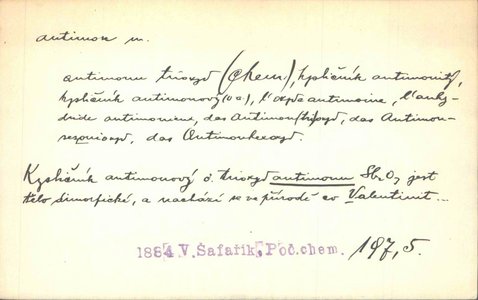 antimon m.
antimonu trioxyd (chem.), kysličník antimonitý,
kysličník antimonový (va), l'oxyde antimoine, l'anhy-
dride antimonieux, das Antimon(tri)oxyd, das Antimon-
das Antimonhexoxyd.
Kysličník antimonový č. trioxyd antimonu jest
tělo dimorfické, a nachází se v přírodě co Valentinit...
1884 V. Šafařík, Poč. chem. 197,5.